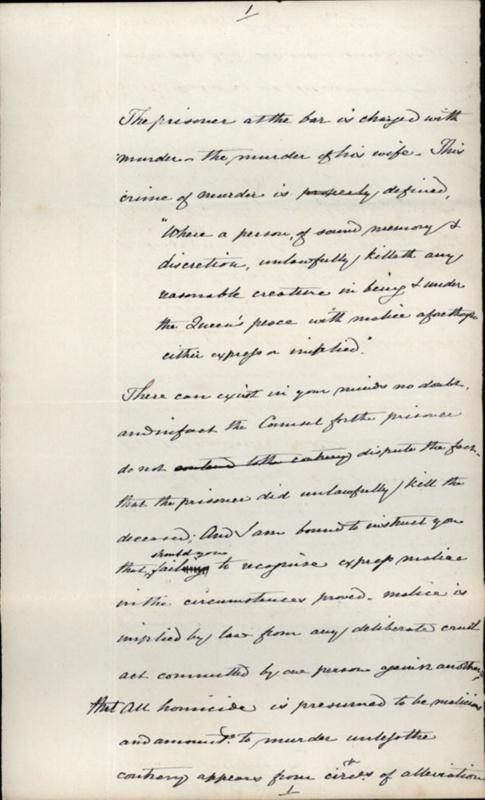 1
The prisoner at the bar is charged with
murder - the murder of his wife - This
crime of murder is properly defined,
"Where a person, of sound memory &
discretion, unlawfully killeth any
reasonable creature in being & under
the Queen's peace with malice aforethought
either express or implied".
There can exist in your minds no doubt,
and in fact the Counsel for the prisoner
do not contend to the contrary dispute the fact
that the prisoner did unlawfully kill the
deceased; And I am bound to instruct you
should you
that, failing to recognise express malice
in the circumstances proved - malice is
implied by law from any deliberate cruel
act committed by one person against another,
that All homicide is presumed to be malicious
and amounts to murder unless the
contrary appears from circ.ts of alleviation
1